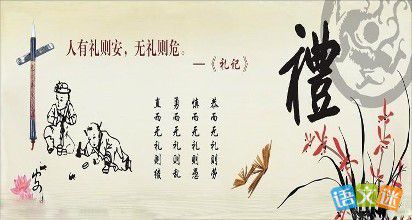 人有礼则安，无礼则危。
—《礼记》
禮
恭而无礼则劳
慎而无礼则
勇而无礼则乱
直而无礼则
语文谜